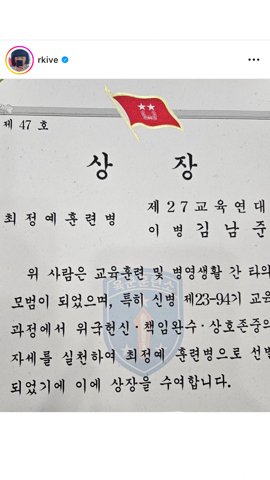 rkive
제 47 호
상 장
최정예훈련병
제27교육연대
이병 김남준
위 사람은 교육훈련 및 병영생활 간 타의
모범이 되었으며, 특히 신병 제23-94기 교육
과정에서 위국헌신·책임완수·상호존중의
자세를 실천하여 최정예 훈련병으로 선발
되었기에 이에 상장을 수여합니다.
육군훈련소